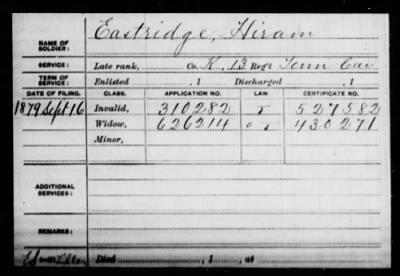 NAME OF SOLDIER: Eastridge, Hiram
SERVICE: Late rank, Co. K, 13 Reg't Tenn Cav
TERM OF SERVICE: Enlisted , 1 Discharged , 1
DATE OF FILING. CLASS. APPLICATION NO. LAW. CERTIFICATE NO.
1879 Sept 16 Invalid, 310282 527582
Widow, 626214 430271
Minor,
ADDITIONAL SERVICES:
REMARKS:
Died , 1 , at